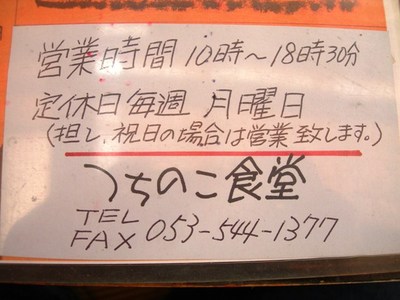 営業時間 10時〜18時30分
定休日 毎週 月曜日
(担し、祝日の場合は営業致します。)
つちのこ食堂
TEL
FAX 053-544-1377